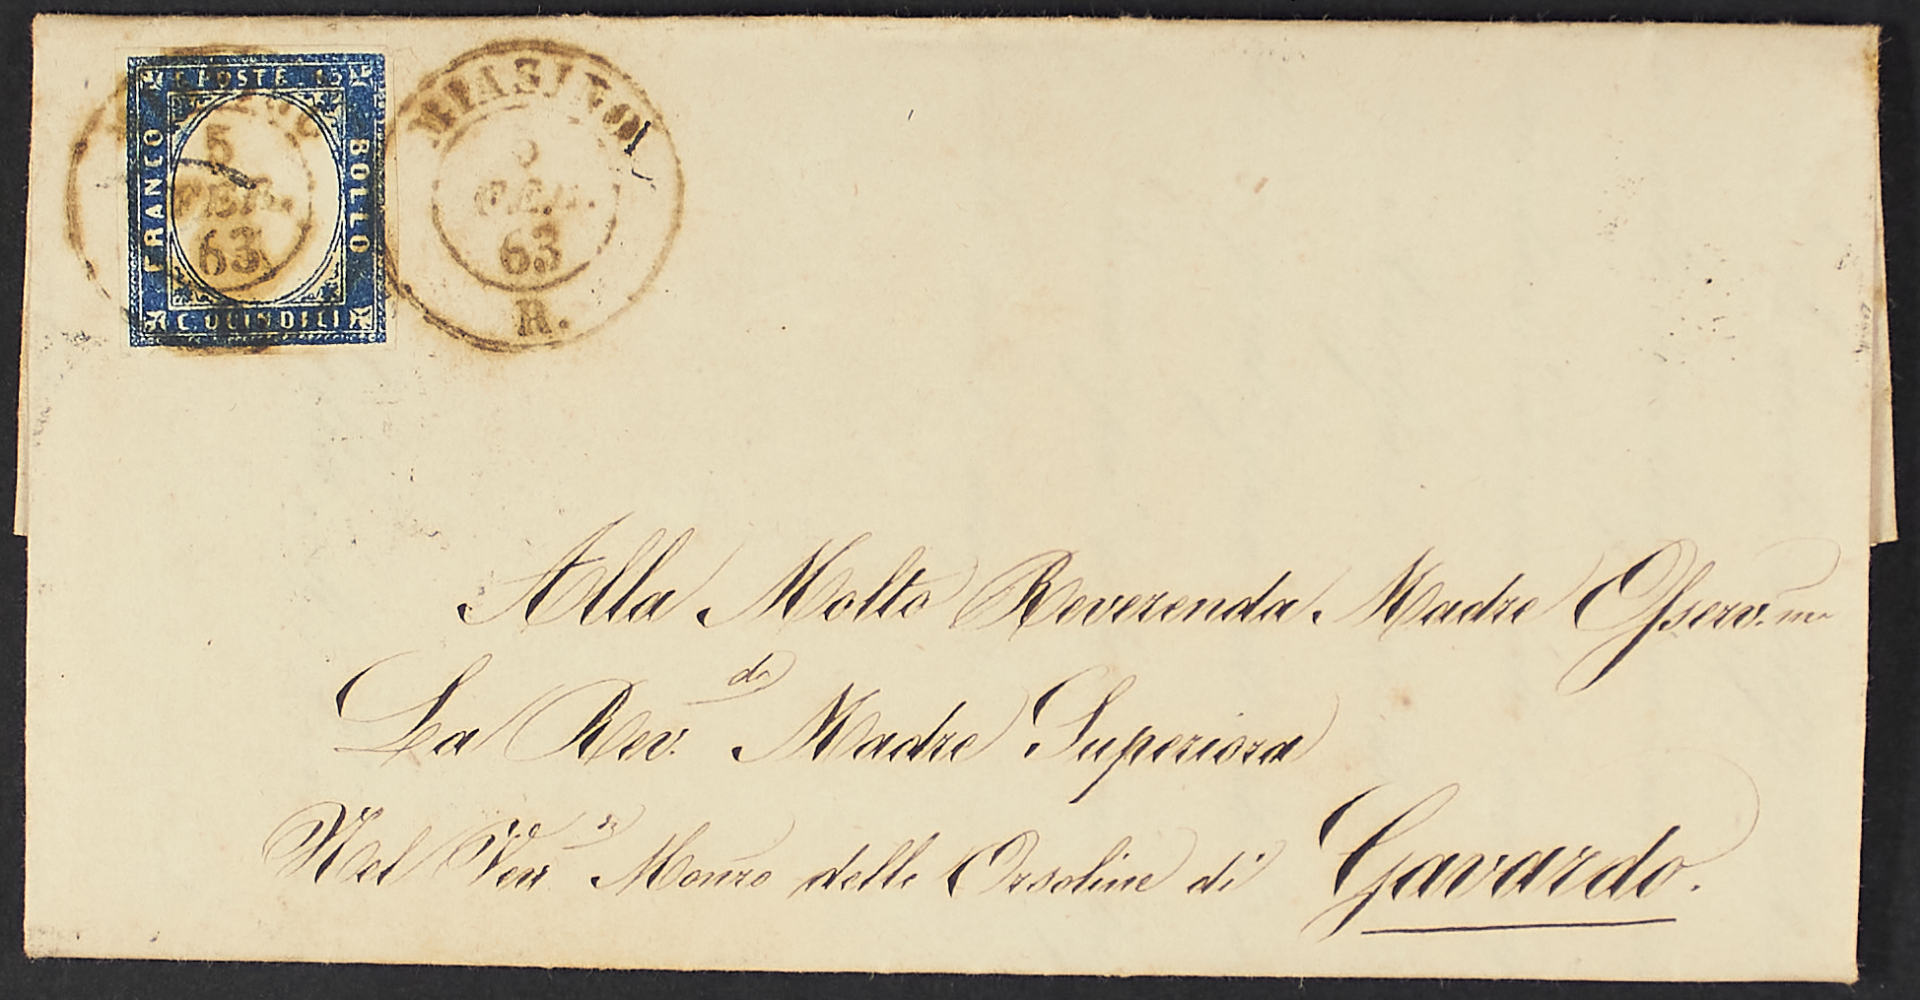 C. POSTE 15
FRANCO
BOLLO
C. QUINDICI
5
FEB.
63
MIASINO
5
FEB.
63
R.
Alla Molto Reverenda Madre Osserv.ma
La Rev.da Madre Superiora
Nel Ven. Monro delle Orsoline di Gavardo.